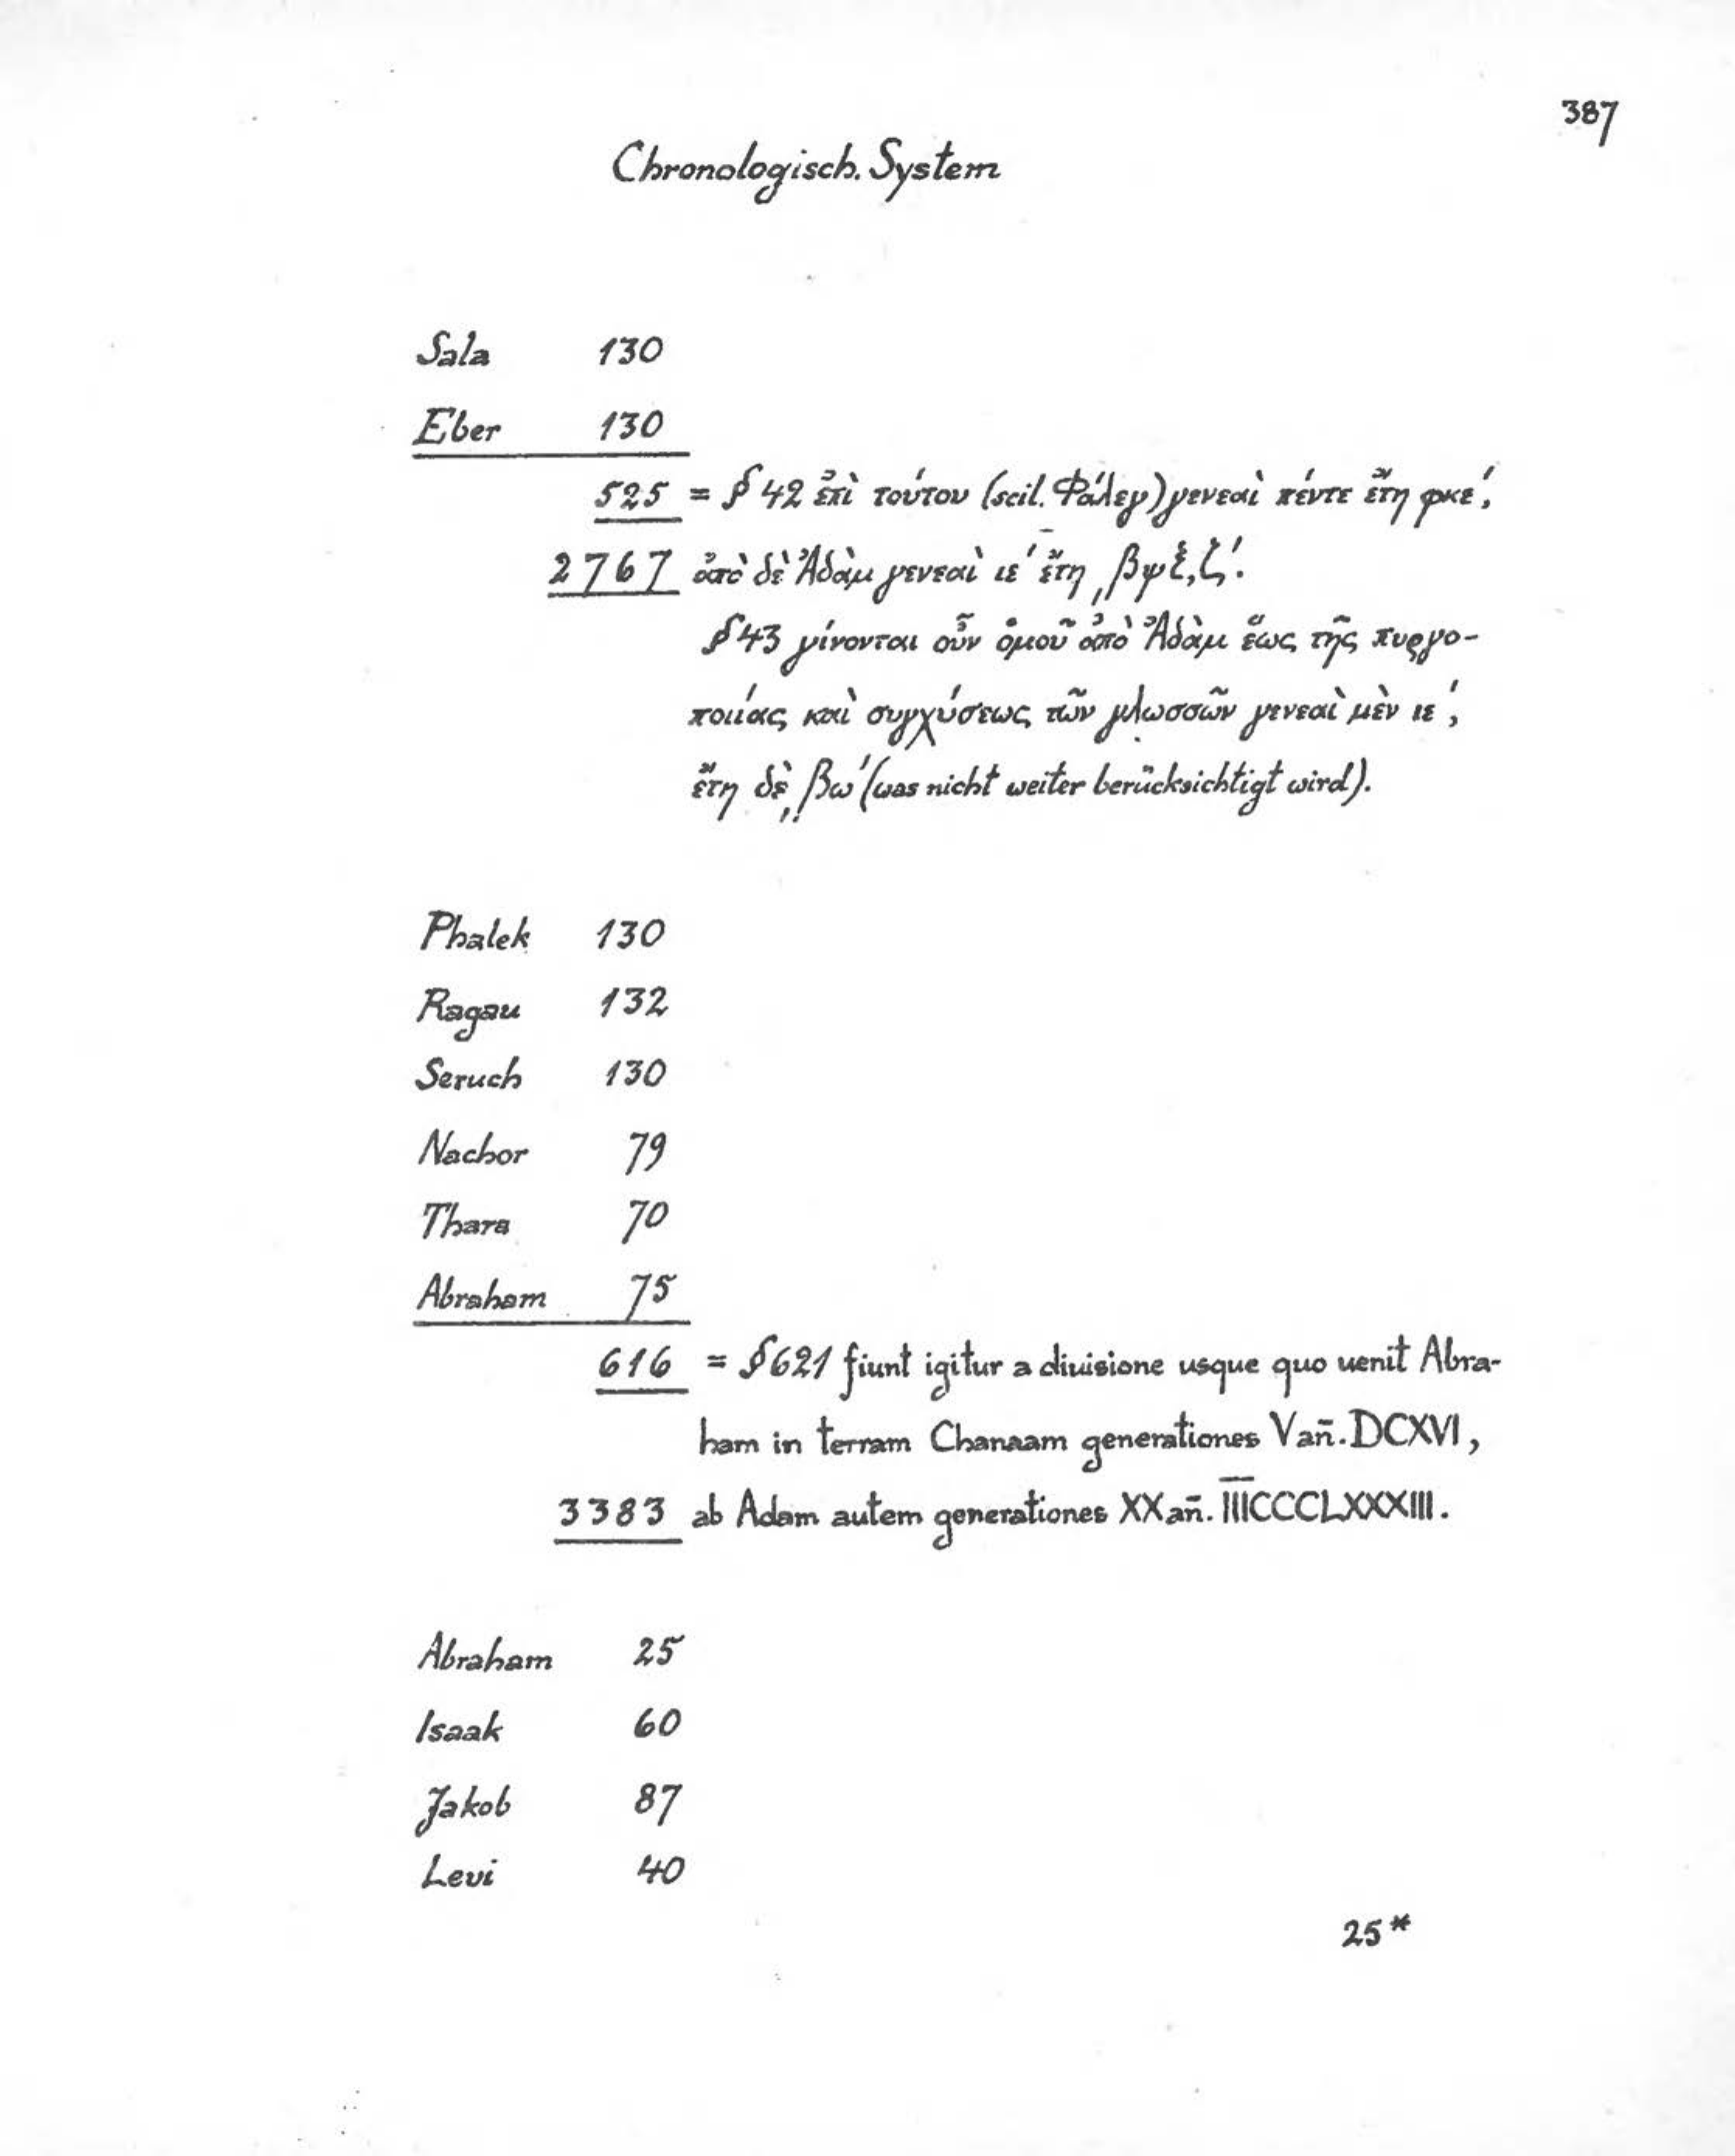 387
Chronologisch. System
Sala 130
Eber 130
525 = § 42 ἐπὶ τούτου (scil. Φάλεγ) γενεαὶ πέντε ἔτη φκε′,
2767 ἀπὸ δὲ Ἀδὰμ γενεαὶ ιε′ ἔτη ͵βψξ,ζ′.
§ 43 γίνονται οὖν ὁμοῦ ἀπὸ Ἀδὰμ ἕως τῆς πυργο-
ποιίας καὶ συγχύσεως τῶν γλωσσῶν γενεαὶ μὲν ιε′,
ἔτη δὲ ͵βω′ (was nicht weiter berücksichtigt wird).
Phalek 130
Ragau 132
Seruch 130
Nachor 79
Thara 70
Abraham 75
616 = § 621 fiunt igitur a diuisione usque quo uenit Abra-
ham in terram Chanaam generationes V an̄. DCXVI,
3383 ab Adam autem generationes XX an̄. I̅I̅I̅CCCLXXXIII.
Abraham 25
Isaak 60
Jakob 87
Levi 40
25*